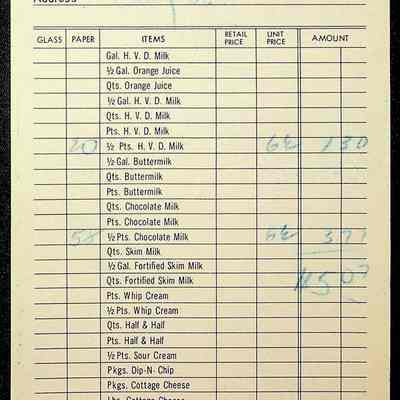 Address
GLASS PAPER ITEMS RETAIL PRICE UNIT PRICE AMOUNT
Gal. H. V. D. Milk
½ Gal. Orange Juice
Qts. Orange Juice
½ Gal. H. V. D. Milk
Qts. H. V. D. Milk
Pts. H. V. D. Milk
20 ½ Pts. H. V. D. Milk 6½ 1 30
½ Gal. Buttermilk
Qts. Buttermilk
Pts. Buttermilk
Qts. Chocolate Milk
Pts. Chocolate Milk
58 ½ Pts. Chocolate Milk 6½ 3 77
Qts. Skim Milk
½ Gal. Fortified Skim Milk
Qts. Fortified Skim Milk 5 07
Pts. Whip Cream
½ Pts. Whip Cream
Qts. Half & Half
Pts. Half & Half
½ Pts. Sour Cream
Pkgs. Dip-N- Chip
Pkgs. Cottage Cheese
Lbs. Cottage Cheese